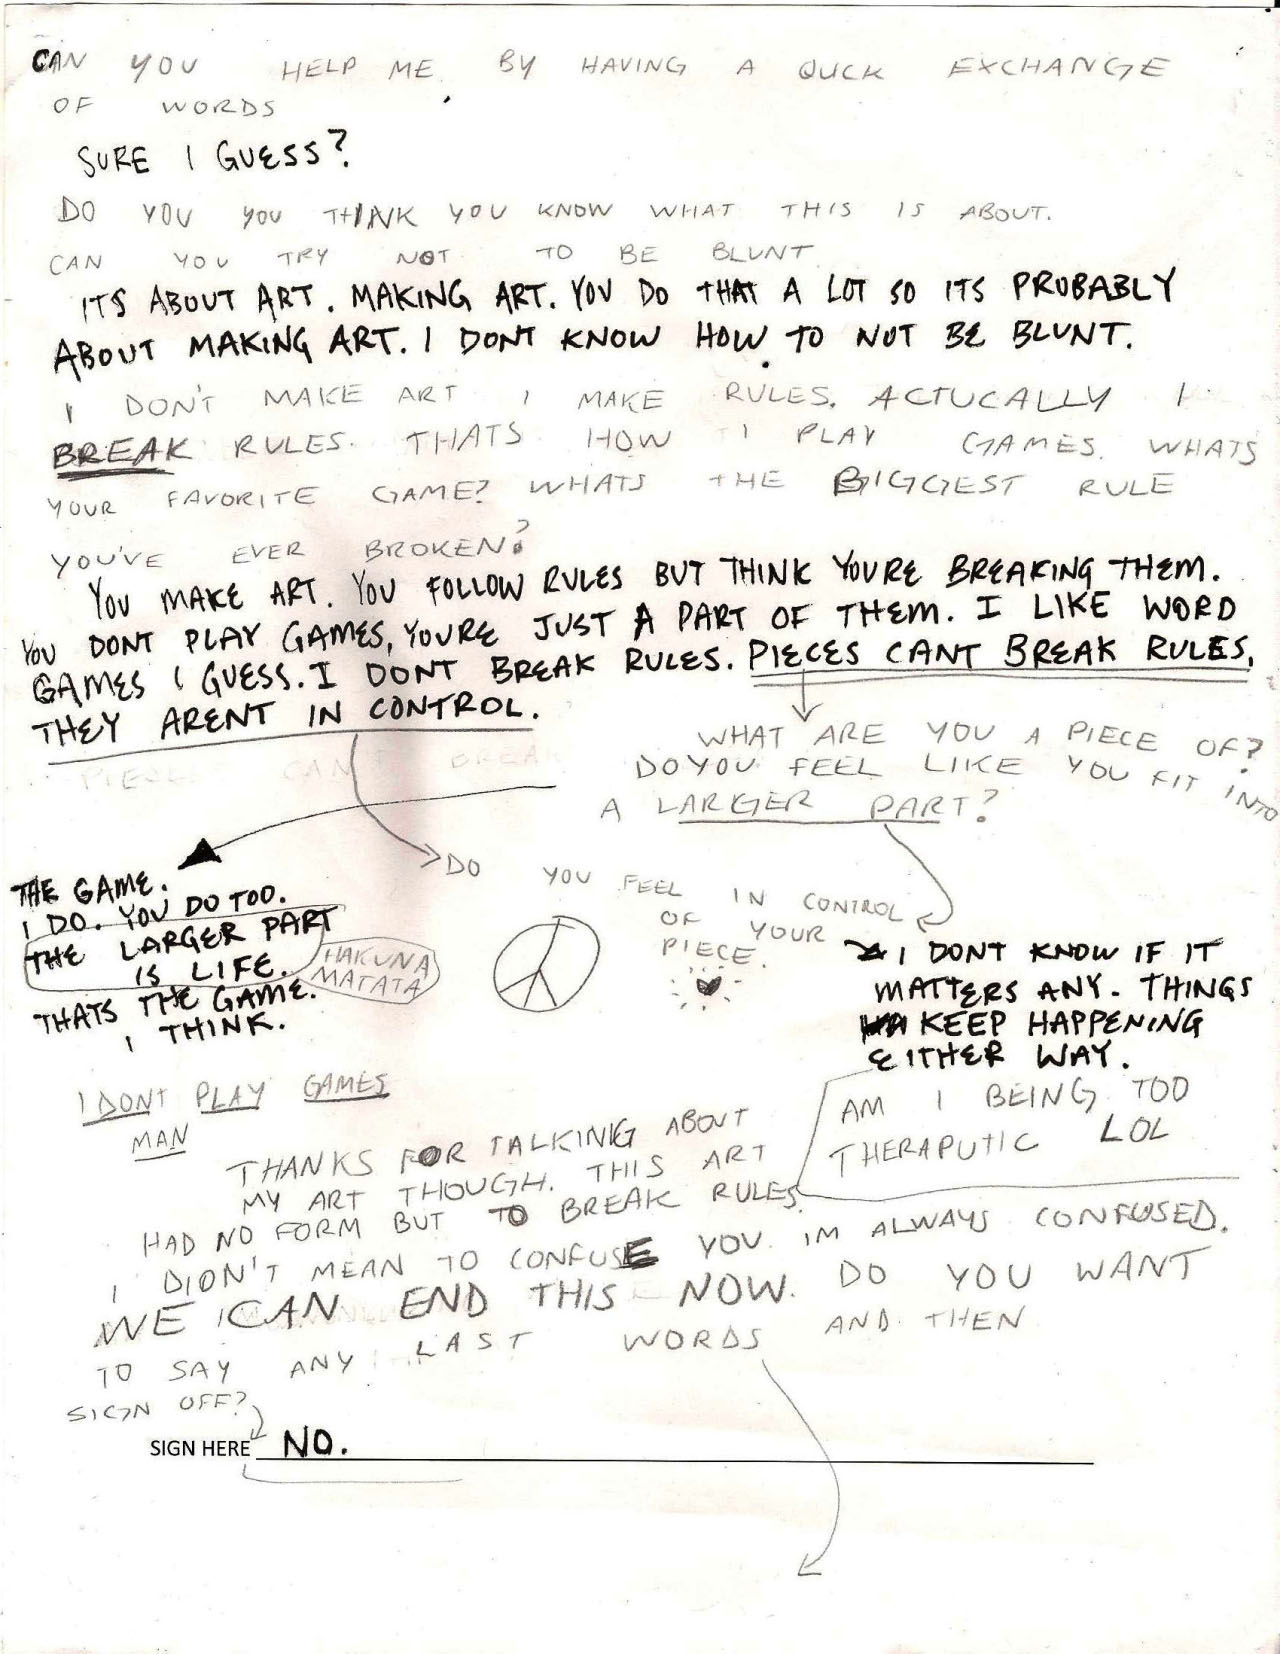 CAN YOU HELP ME BY HAVING A QUCK EXCHANGE
OF WORDS
SURE I GUESS?
DO YOU YOU THINK YOU KNOW WHAT THIS IS ABOUT.
CAN YOU TRY NOT TO BE BLUNT
ITS ABOUT ART. MAKING ART. YOU DO THAT A LOT SO ITS PROBABLY
ABOUT MAKING ART. I DONT KNOW HOW TO NOT BE BLUNT.
I DON'T MAKE ART I MAKE RULES. ACTUCALLY I
BREAK RULES. THATS HOW I PLAY GAMES. WHATS
YOUR FAVORITE GAME? WHATS THE BIGGEST RULE
YOU'VE EVER BROKEN?
YOU MAKE ART. YOU FOLLOW RULES BUT THINK YOURE BREAKING THEM.
YOU DONT PLAY GAMES, YOURE JUST A PART OF THEM. I LIKE WORD
GAMES I GUESS. I DONT BREAK RULES. PIECES CANT BREAK RULES,
THEY ARENT IN CONTROL.
WHAT ARE YOU A PIECE OF?
DO YOU FEEL LIKE YOU FIT INTO
A LARGER PART?
THE GAME.
I DO. YOU DO TOO.
THE LARGER PART
IS LIFE.
THATS THE GAME.
I THINK.
HAKUNA
MATATA
DO YOU FEEL IN CONTROL
OF YOUR
PIECE.
I DONT KNOW IF IT
MATTERS ANY. THINGS
KEEP HAPPENING
EITHER WAY.
AM I BEING TOO
THERAPUTIC LOL
I DONT PLAY GAMES
MAN
THANKS FOR TALKING ABOUT
MY ART THOUGH. THIS ART
HAD NO FORM BUT TO BREAK RULES.
I DIDN'T MEAN TO CONFUSE YOU. IM ALWAYS CONFUSED.
WE CAN END THIS NOW. DO YOU WANT
TO SAY ANY LAST WORDS AND THEN
SIGN OFF?
SIGN HERE NO.